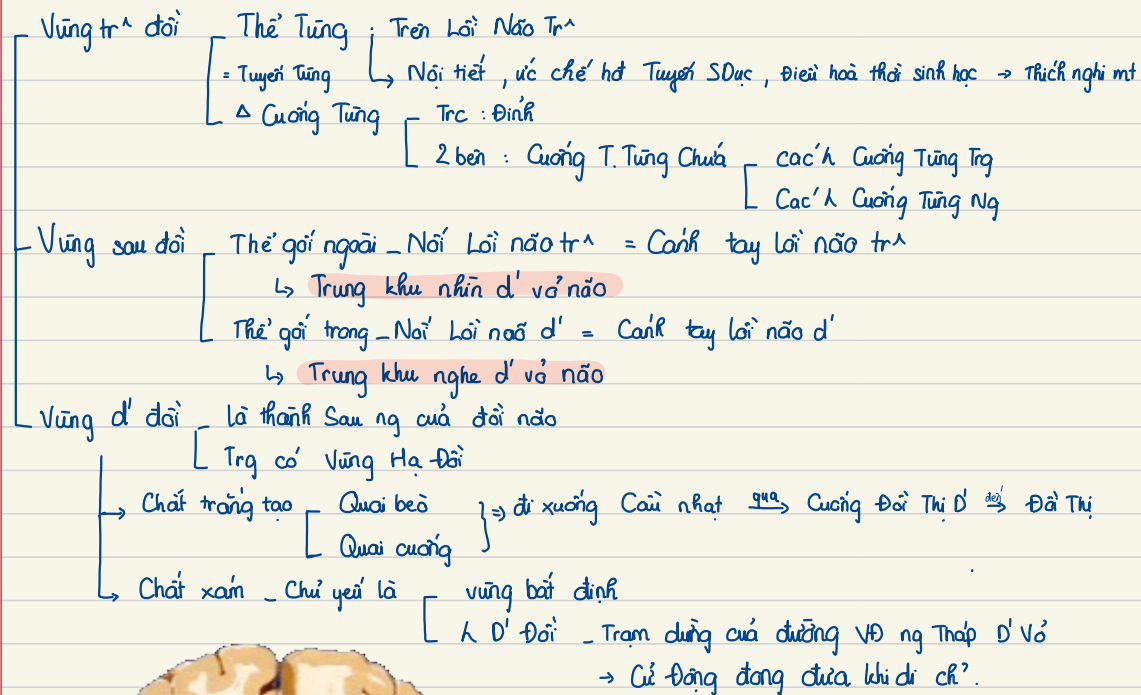 Vùng tr^ đồi
Thể Tùng : Trên Lồi Não Tr^
= Tuyến Tùng ↳ Nội tiết , ức chế hđ Tuyến SDục , Điều hoà thời sinh học → Thích nghi mt
Δ Cuống Tùng Trc : Đỉnh
2 bên : Cuống T.Tùng Chứa các h Cuống Tùng Trg
Các h Cuống Tùng Ng
Vùng sau đồi Thể gối ngoài _ Nối Lồi não tr^ = Cánh tay lồi não tr^
↳ Trung khu nhìn d' vỏ não
Thể gối trong _ Nối Lồi não d' = Cánh tay lồi não d'
↳ Trung khu nghe d' vỏ não
Vùng d' đồi là thành Sau ng của đồi não
Trg có Vùng Hạ Đồi
→ Chất trắng tạo Quai bèo } ⇒ đi xuống Cầu nhạt qua→ Cuống Đồi Thị D' đến→ Đồi Thị
Quai cuống
↳ Chất xám _ Chủ yếu là vùng bất định
h D' Đồi _ Trạm dừng của đường VĐ ng Tháp D' Vỏ
→ Cử Động đong đưa khi di ch?.